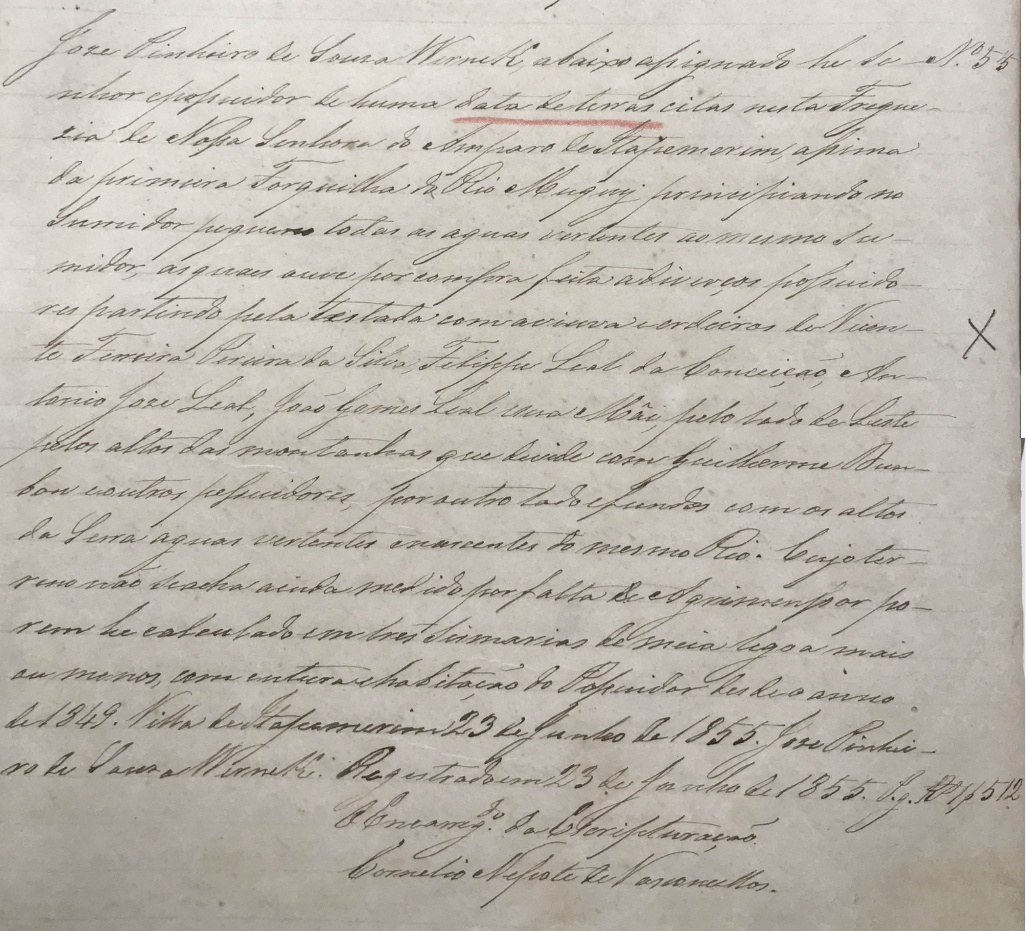 Joze Pinheiro de Souza Wernek, abaixo assignado he Se- Nº 55
nhor epossuidor de huma data de terras citas nesta Fregue-
zia de Nossa Senhora do Amparo de Itapemerim, assima
da primeira Forquilha do Rio Muquy principiando no
Sumidor pequeno todas as aguas vertentes ao mesmo Su-
midor, as quaes ouve por compra feita a diverços possuido-
res partindo pela testada com aviuva e erdeiros de Vicen-
te Ferreira Pereira da Silva, Felippe Leal da Conceição, An-
tonio Joze Leal, João Gomes Leal esua Mãe, pelo lado de Leste
pelos altos das montanhas que divide com Guilherme Bun-
ban eoutros pessuidores, por outro lado efundos com os altos
da Serra aguas vertentes enascentes do mesmo Rio. Cujo ter-
reno não seacha ainda medido por falta de Agrimenssor po-
rem he calculado em tres Sismarias de meia legoa mais
ou menos, com cultura ehabitação do Possuidor desde o anno
de 1849. Villa de Itapemerim 23 de Junho de 1855. Joze Pinhei-
ro de Souza Wernek. Registrado em 23 de Junho de 1855. Pg. 512
O Encarrgº. da Escripturação
Cornelio Nepote de Vasconcellos.